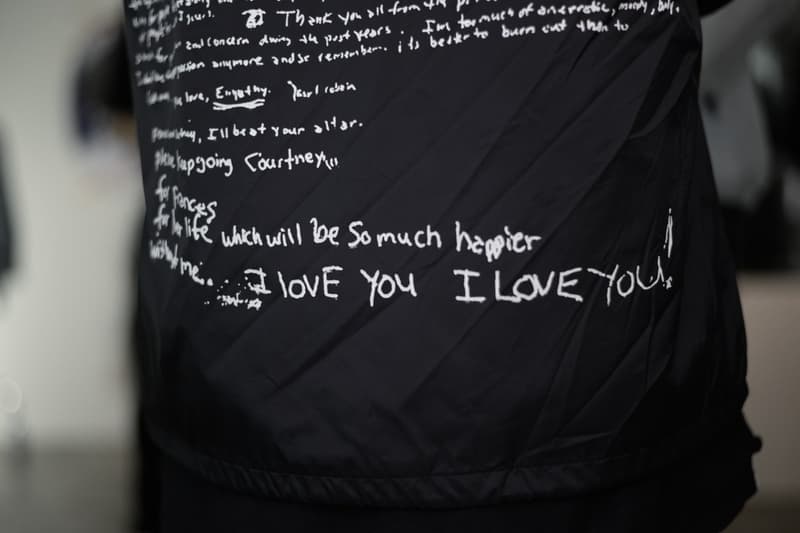 I Thank you all from the
and concern during the past years. I'm too much of an erratic, moody, baby.
anymore and so remember. its better to burn out then to
love, Empathy. Kurt Cobain
I'll be at your altar.
please keep going Courtney
for Frances
for her life which will be So much happier
without me. I LOVE YOU I LOVE YOU!